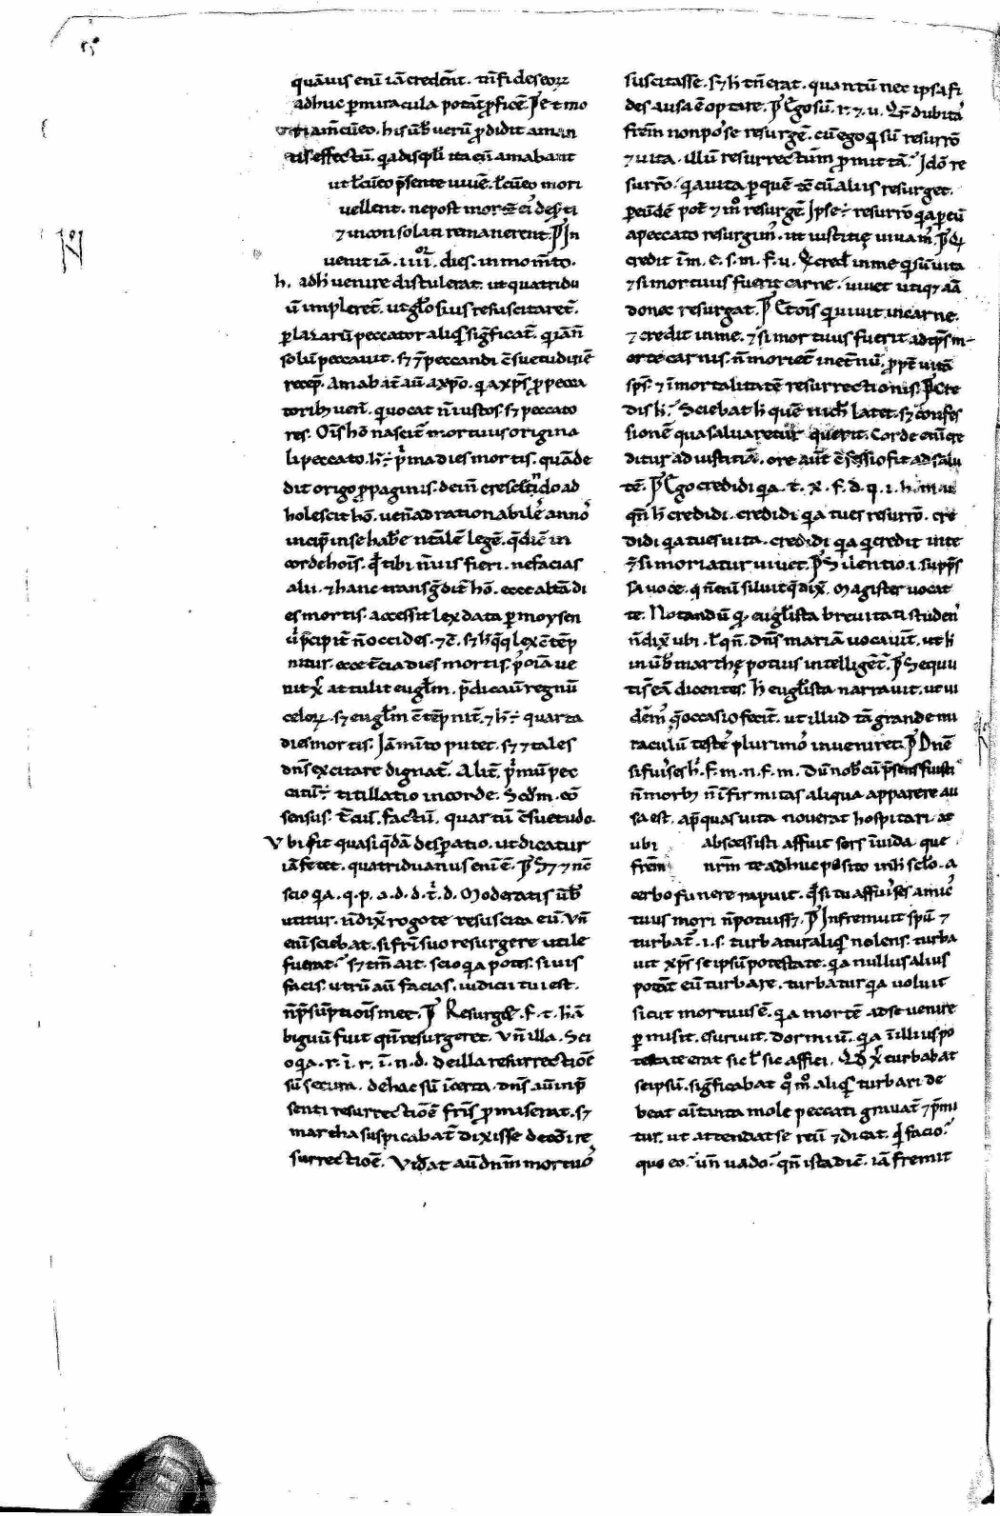 quāuis enī iā crederēt. tn̄ fides eoꝝ
adhuc ꝑ miracula potat̄ ꝓficē. ⁋ Et mo
riam̄ cū eo. his ūb̄ uerū ꝓdidit aman
tis effectū. q̄a discipl̄i ita eū amabant
ut l̄ cū eo p̄sente uiuē. l̄ cū eo mori
uellent. ne post mortē ei desꝑati
⁊ inconsolati remanerent. ⁋ In
uenit iā .iiii. dies. in mom̄to.
h. adh̄ uenire distulerat. ut quatridu
ū impleret̄. ut gl̄osius resuscitaret̄.
ꝑ lazarū peccator aliq̄s sigficat̄. q̄ iān̄
solū peccauit. sꝫ ⁊ peccandi c̄suetudinē
recep̄. Amabāt aū a xp̄o. q̄a xp̄s ꝓ pecca
toribꝫ uen̄. q̄ uocat n̄ iustos. sꝫ peccato
res. Oīs hō nascit̄ mortuus origina
li peccato. h̄ ÷ p̄ma dies mortis. quā de
dit origo ꝓpaginis. dein̄ crescendo ad
holescit hō. uen̄ ad rationabilē annos
incipit in se hab̄e nat̄alē legē. q̄ dic̄ in
corde hoīs. q̄d tibi n̄ uis fieri. ne facias
alii. ⁊ hanc transgdit̄ hō. ecce alt̄a di
es mortis. accessit lex data ꝑ moysen
ū p̄cipit̄ n̄ occides. ⁊c̄. sꝫ h̄ q̄q̄ lex c̄tēp
nitur. ecce t̄cia dies mortis. p̄ oīa ue
nit xp̄c attulit eugl̄m. p̄dicau̇ regnū
celoꝝ. sꝫ eugl̄m c̄tēpnit̄. ⁊ h̄ ÷ quarta
dies mortis. Iā m̄ito putet. sꝫ ⁊ tales
dn̄s excitare dignat̄. Alit̄. p̄mū pec
catū ÷ titillatio in corde. Scd̄m. cō
sensus. t̄ciū. factū. quartū c̄suetudo.
Ubi fit quasi q̄dā desꝑatio. ut dicatur
iā fetet. quatriduanus enī ē. ⁋ Sꝫ ⁊ n̄c
scio q̄a. q. p. a. d. d. t̄. d. Moderatis ūb̄
utitur. n̄ dix̄ rogo te resuscita eū. Un̄
enī sciebat. si fr̄i suo resurgere utile
fuerat. sꝫ tm̄ ait. scio q̄a potes. si uis
facis. utrū aū facias. iudicii tui est.
n̄ p̄sūptiōis mee. ⁋ Resurgꝫ. f. t. h̄ ā
biguū fuit qn̄ resurgeret. Un̄ illa. Sci
o q̄a. r. ī. r. ī. n. d. de illa resurrectiōe
sū secura. de hac sū īcerta. dn̄s aū in p̄
senti resurrectiōē fr̄is ꝓmiserat. sꝫ
martha suspicabat̄ dixisse de cōi re
surrectiōe. Uiderat aū dn̄m mortuos
suscitasse. sꝫ h̄ tn̄ erat. quantū nec ipsa fi
des ausa ē optare. ⁋ Ego sū. r. ⁊ u. Qd̄ dubitas
frēm non posse resurgē. cū ego q̄ sū resurro
⁊ uita. illū resurrecturū ꝓmittā. Idō re
surro. q̄a uita ꝑ quē tc̄ cū aliis resurget.
ꝑ eūdē pot̄ ⁊ m̊ resurgē. Ipse ÷ resurro q̄a ꝑ eū
a peccato resurgim̄. ut iusticię uiuam̄. ⁋ Q̄
credit ī m. e. s. m. f. u. Q̄ cred̄ in me q̄ sū uita
⁊ si mortuus fuerit carne. uiuet utiqꝫ aīa
donec resurgat. ⁋ Et oīs q̄ uiuit in carne.
⁊ credit in me. ⁊ si mortuus fuerit ad tp̄s m-
orte carnis. n̄ moriet̄ in et̄nū. ꝓpt̄ uitā
sp̄s. ⁊ īmortalitatē resurrectionis. ⁋ Cre
dis h̄. Sciebat h̄ quē nichil latet. sꝫ c̄fes
sionē qua saluaretur querit. Corde enī cre
ditur ad iustitiā. ore aūt c̄fessio fit ad salu
tē. ⁋ Ego credidi q̄a. t. x. f. d. q. i. h. m.
qn̄ h̄ credidi. credidi q̄a tu es resurro. cre
didi q̄a tu es uita. credidi q̄a q̄ credit in te
⁊ si moriatur uiuet. ⁋ Silentio. i. supp̄s
sa uoce. q̄ n̄ enī siluit q̄ dix̄. Magister uocat
te. Notandū qꝫ eugl̄ista breuitati studens
n̄ dix̄ ubi. l̄ qn̄. dn̄s mariā uocauit. ut h̄
in ūb̄ marthę potius intelligeret̄. ⁋ Sequu
ti s̄ eā dicentes. h̄ eugl̄ista narrauit. ut ui
dem̄ q̄ occasio fecit. ut illud tā grande mi
raculū testes plurimos inueniret. ⁋ Dn̄e
si fuisses h̄. f. m. n. f. m. Dū nob̄ cū p̄sens fuisti
n̄ morbꝫ n̄ īfirmitas aliqua apparere au
sa est. ap̄ quas uita nouerat hospitari. at
ubi abscessisti affuit sors īuida. que
frēm nrm̄ te adhuc posito in h̄ sclo. a
cerbo funere rapuit. q̄ si tu affuisses amic
tuus mori n̄ potuissꝫ. ⁋ Infremuit sp̄u ⁊
turbat̄. i. s. turbatur aliq̄s nolens. turba
uit xp̄s se ipsū potestate. q̄a nullus alius
potat̄ eū turbare. turbatur q̄a uoluit
sicut mortuus ē. q̄a mortē ad se uenire
ꝑmisit. esuriuit. dormiū. q̄a ī illius po
testate erat sic l̄ sic affici. Qd̄ xp̄c turbabat
seipsū. sigficabat q̊ m̊ aliq̄s turbari de
beat cū tanta mole peccati grauat̄ ⁊ p̄mi
tur. ut attendat se reū ⁊ dicat. q̄d facio.
quo eo. un̄ uado. qn̄ ista dic̄. iā fremit